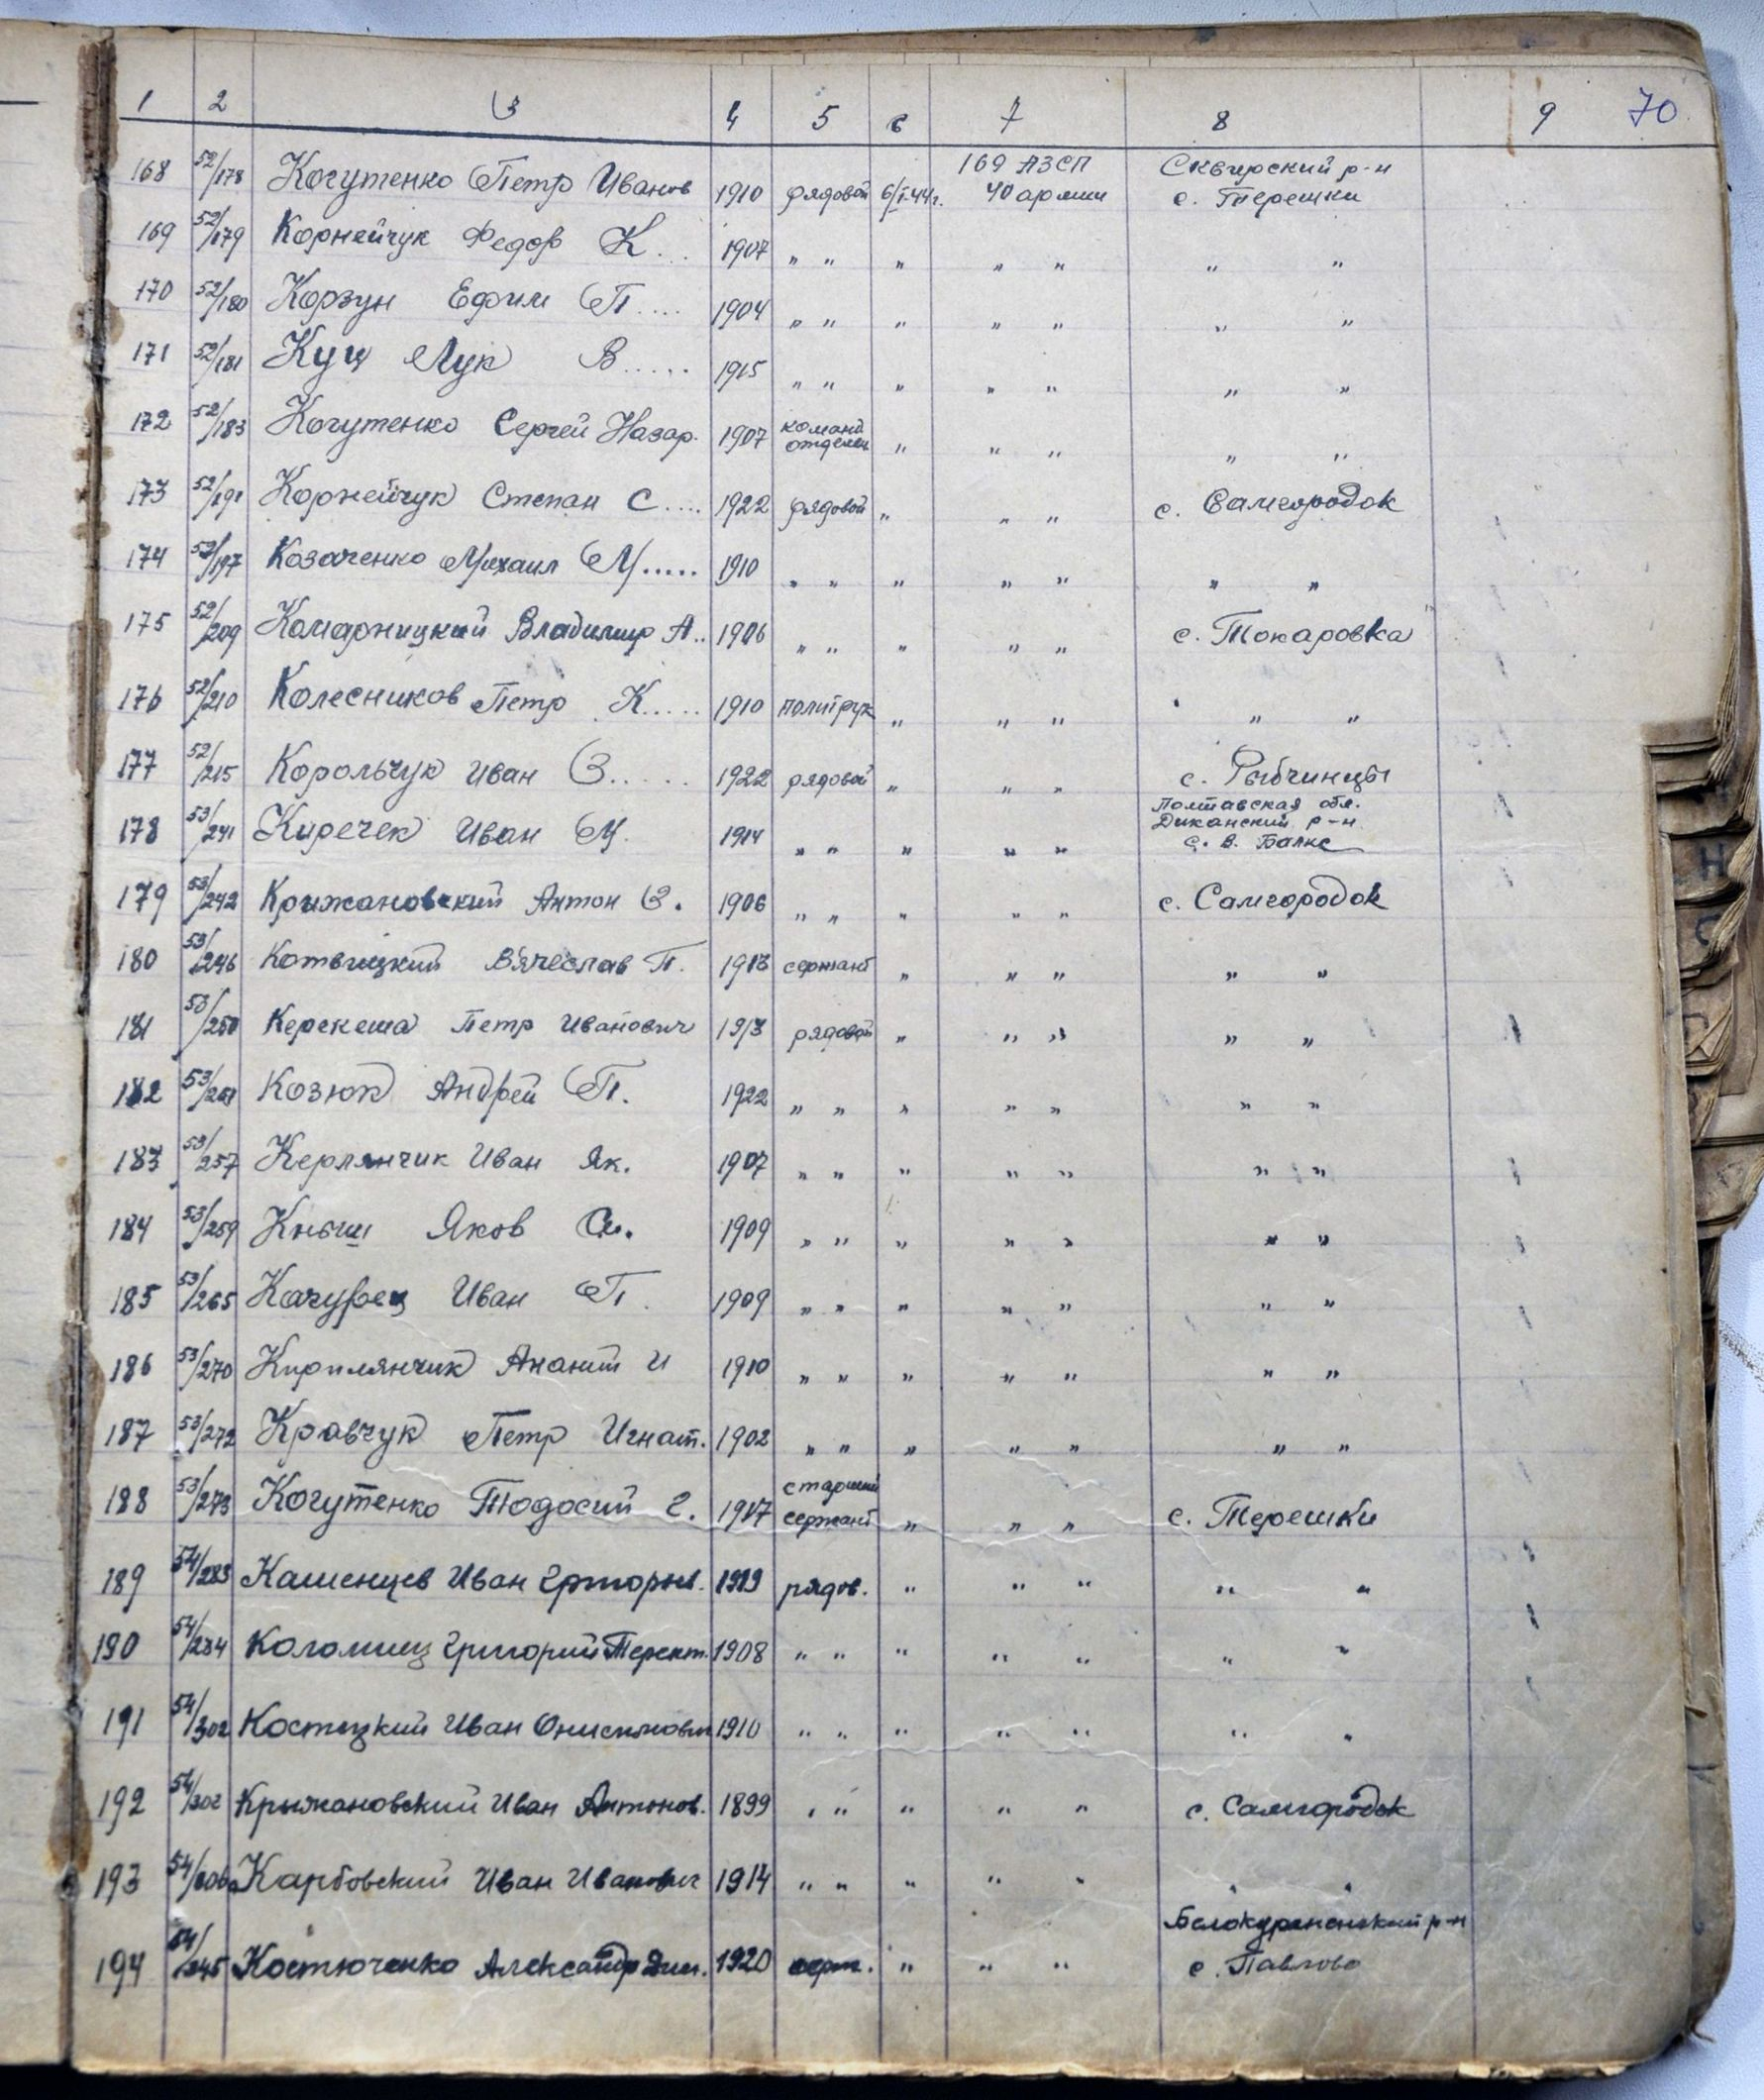 1 2 3 4 5 6 7 8 9 70
168 52/178 Когутенко Петр Иванов 1910 рядовой 6/I-44г. 169 АЗСП 40 армии Сквирский р-н с. Терешки
169 52/179 Корнейчук Федор К... 1907 „ „ „ „ „ „ „
170 52/180 Корзун Ефим П.... 1904 „ „ „ „ „ „ „
171 52/181 Куц Лук В..... 1915 „ „ „ „ „ „ „
172 52/183 Когутенко Сергей Назар. 1907 команд отделен „ „ „ „ „
173 52/191 Корнейчук Степан С.... 1922 рядовой „ „ „ с. Самгородок
174 52/197 Козаченко Михаил М..... 1910 „ „ „ „ „ „ „
175 52/209 Комарницкий Владимир А.. 1906 „ „ „ „ „ с. Токаровка
176 52/210 Колесников Петр К..... 1910 политрук „ „ „ „ „
177 52/215 Корольчук Иван З..... 1922 рядовой „ „ „ с. Рыбчинцы
178 53/241 Киречек Иван М. 1914 „ „ „ „ „ Полтавская обл. Диканский р-н с. В. Балке
179 53/242 Крижановский Антон З. 1906 „ „ „ „ „ с. Самгородок
180 53/246 Котвицкий Вячеслав П. 1913 сержант „ „ „ „ „
181 53/250 Керекеша Петр Иванович 1913 рядовой „ „ „ „ „
182 53/251 Козюк Андрей П. 1922 „ „ „ „ „ „ „
183 53/257 Керлянчик Иван Як. 1907 „ „ „ „ „ „ „
184 53/259 Кныш Яков 1909 „ „ „ „ „ „ „
185 53/265 Качурец Иван П. 1909 „ „ „ „ „ „ „
186 53/270 Кирилянчик Ананий И 1910 „ „ „ „ „ „ „
187 53/272 Кравчук Петр Игнат. 1902 „ „ „ „ „ „ „
188 53/273 Когутенко Тодосий Г. 1917 старший сержант „ „ „ с. Терешки
189 54/283 Кашенцев Иван 1919 рядов. „ „ „ „ „
190 54/284 Коломиец Григорий Терент. 1908 „ „ „ „ „ „ „
191 54/302 Костецкий Иван 1910 „ „ „ „ „ „ „
192 Крыжановский Иван Антонов. 1899 „ „ „ „ „ с. Самгородок
193 Карбовский Иван Иванович 1914 „ „ „ „ „ „ „
194 Костюченко Александр Дим. 1920 серж. „ „ „ с. Павлово